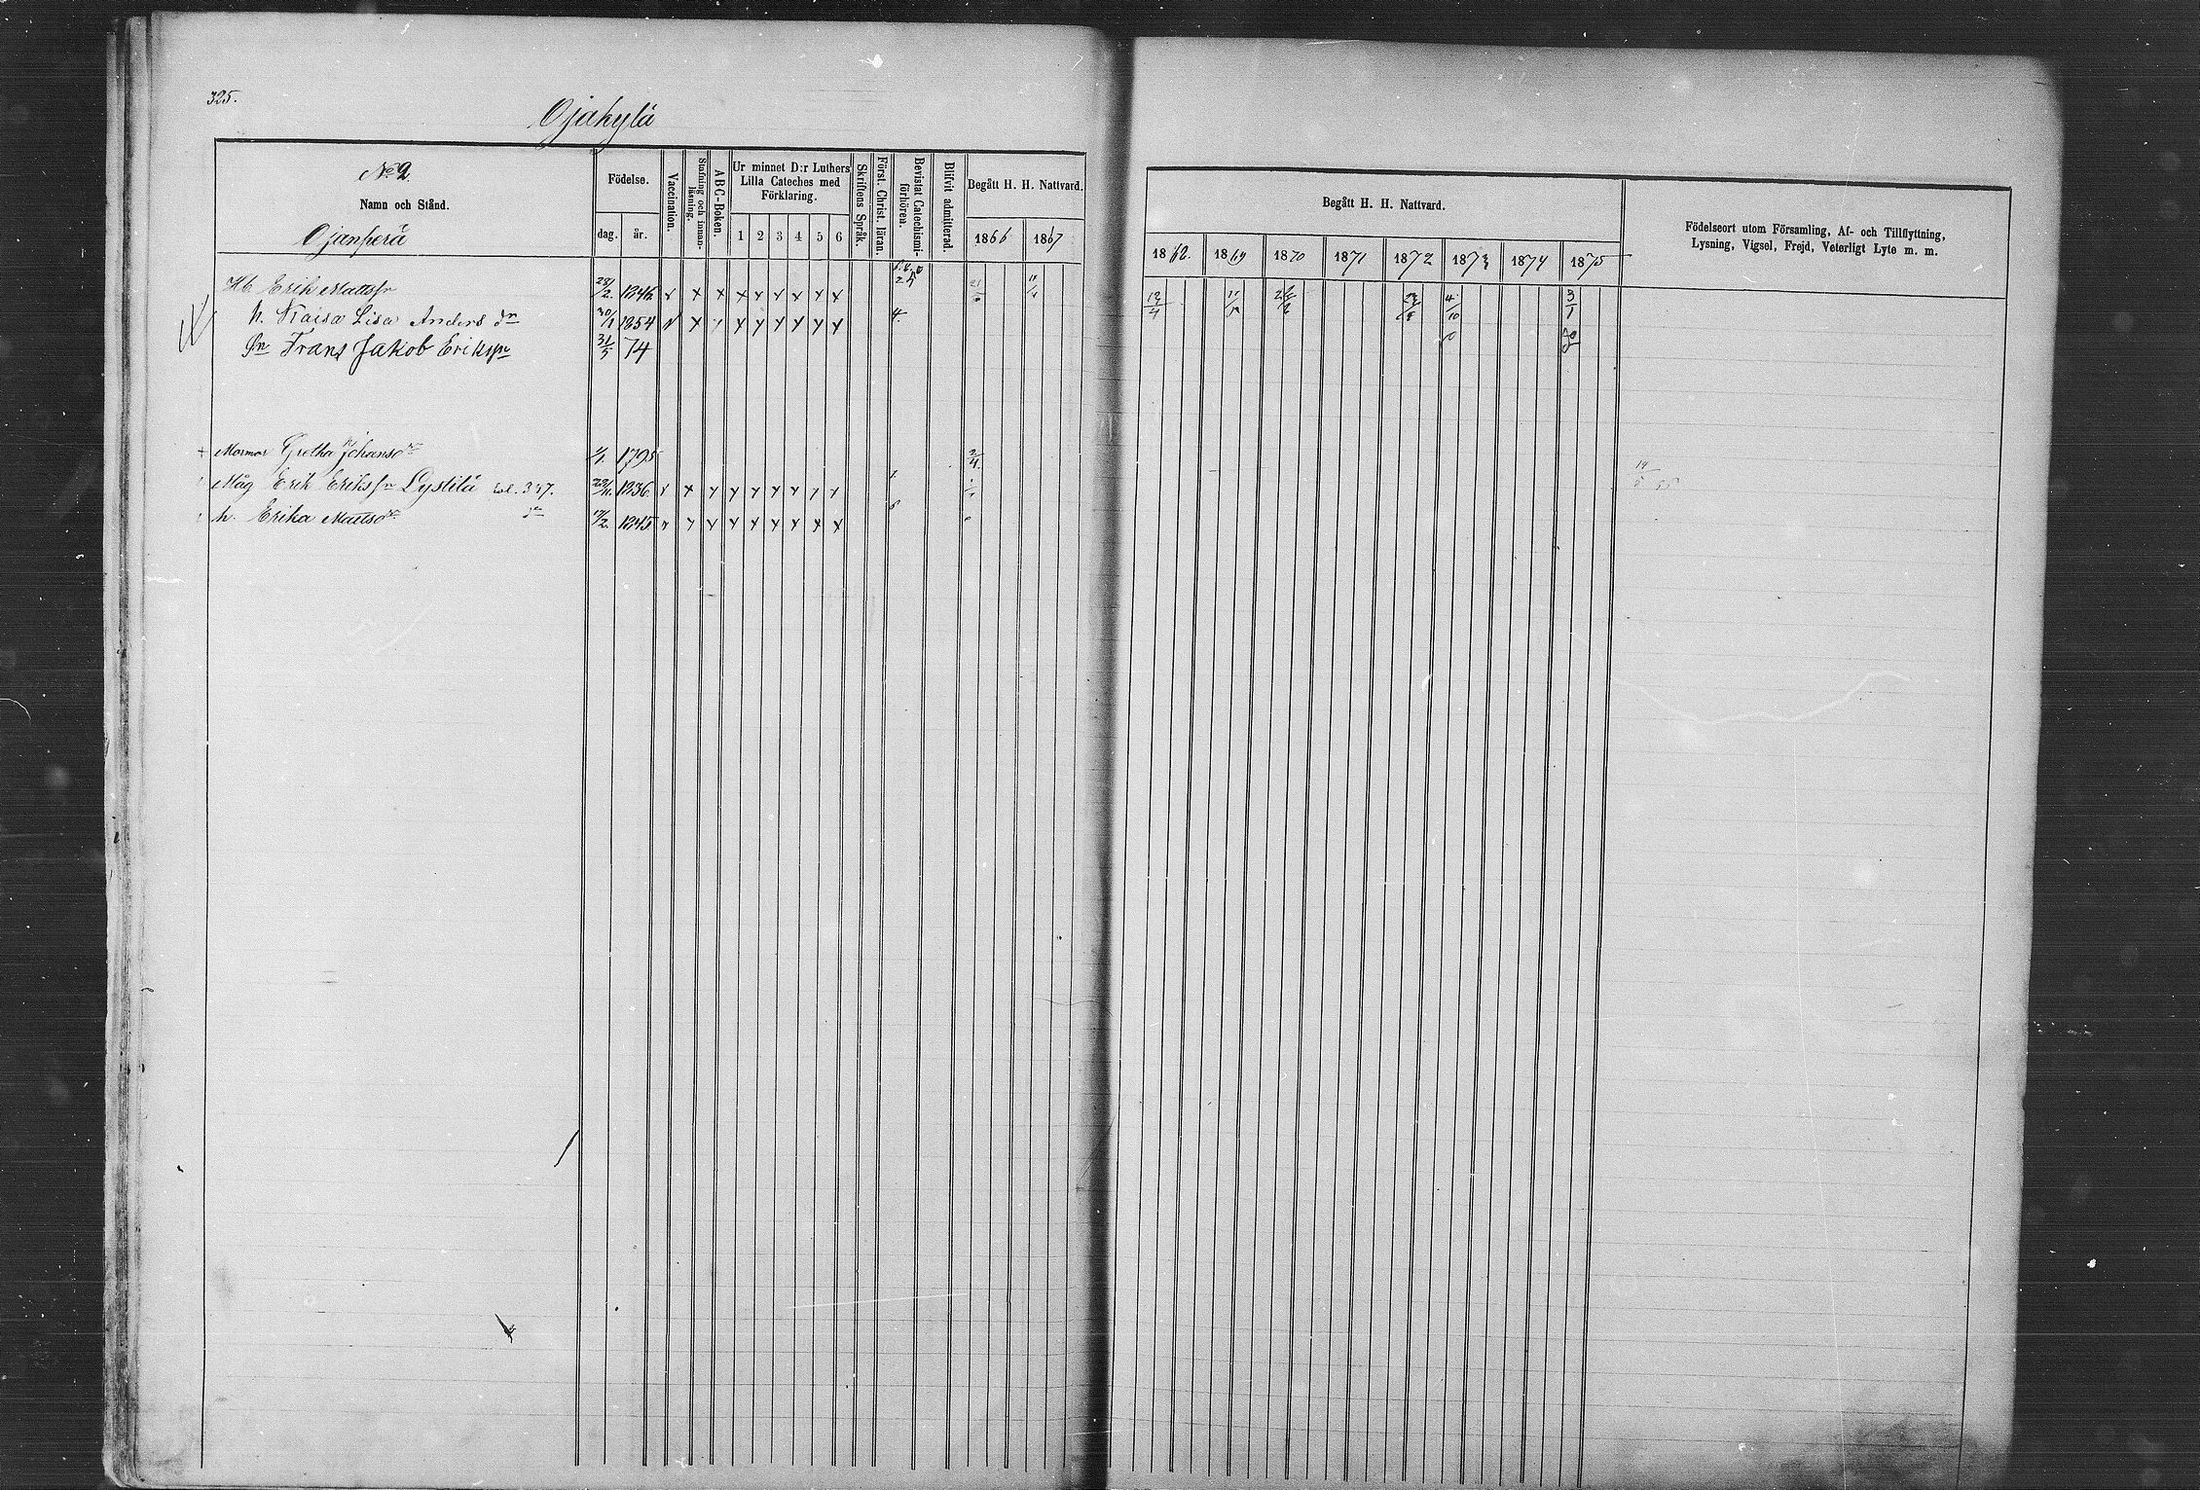 325.
Ojakylä
No 2
Namn och Stånd.
Ojanperä
Födelse.
dag. år.
Vaccination.
Stafning och innan-läsning.
ABC-Boken.
Ur minnet D:r Luthers
Lilla Cateches med
Förklaring.
1 2 3 4 5 6
Skriftens Språk.
Först. Christ. läran.
Bevistat Catechismi-förhören.
Blifvit admitterad.
Begått H. H. Nattvard.
1866 1867
Erik Mattsn 28/2 1846 x x x x x x x x x
h. Kaisa Lisa Anders dr 30/1 1854 x x x x x x x x 4.
Sn Frans Jakob Eriksn 31/5 74
+ Mormor Gretha Johansdr 1795 2/4.
Måg Erik Eriksn Lystilä 347. 1836 x x x x x x x x x
h. Erika Mattsdr 1845 x x x x x x x x x
Begått H. H. Nattvard.
1868. 1869 1870 1871 1872 1873 1874 1875
Födelseort utom Församling, Af- och Tillflyttning,
Lysning, Vigsel, Frejd, Veterligt Lyte m. m.
12/4 4/10 3/1